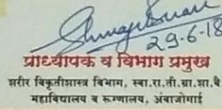 29-6-18
प्राध्यापक व विभाग प्रमुख
शरीर विकृतीशास्त्र विभाग, स्वा.रा.ती.ग्रा.शा.वै
महाविद्यालय व रूग्णालय, अंबाजोगाई